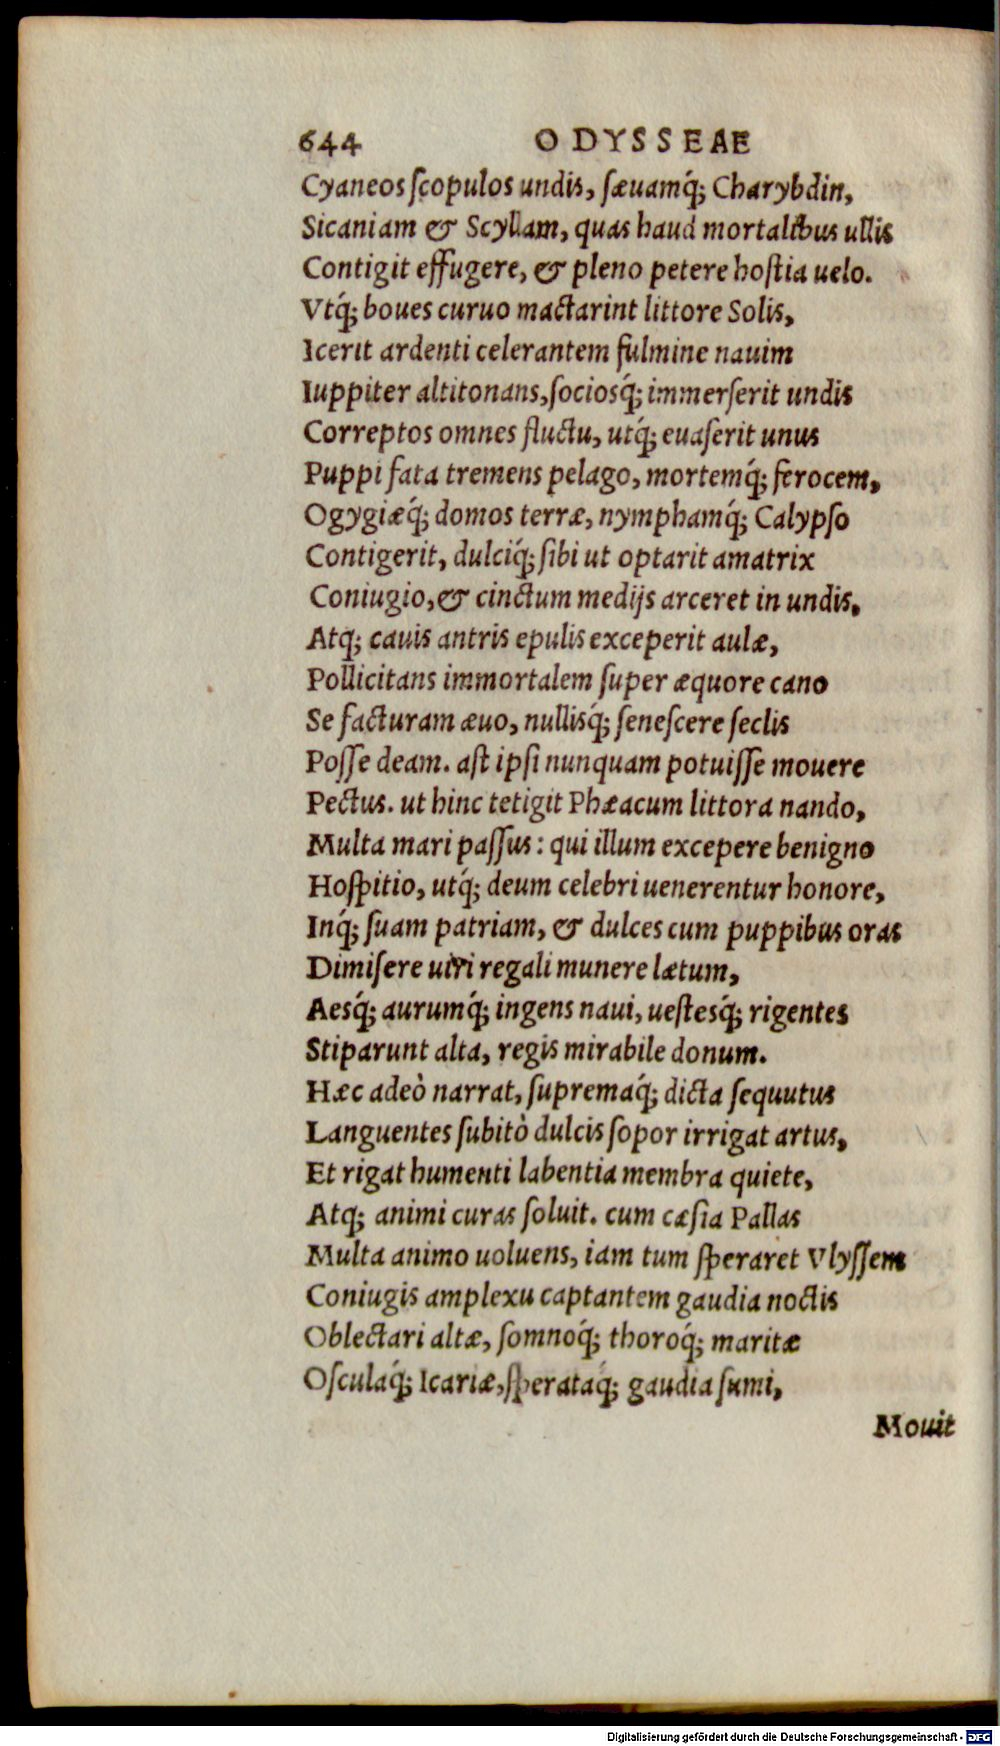 644 ODYSSEAE
Cyaneos ſcopulos undis, ſæuamq́; Charybdin,
Sicaniam & Scyllam, quas haud mortalibus ullis
Contigit effugere, & pleno petere hoſtia uelo.
Vtq́; boues curuo mactarint littore Solis,
Icerit ardenti celerantem fulmine nauim
Iuppiter altitonans, ſociosq́; immerſerit undis
Correptos omnes fluctu, utq́; euaſerit unus
Puppi fata tremens pelago, mortemq́; ferocem,
Ogygiæq́; domos terræ, nymphamq́; Calypſo
Contigerit, dulciq́; ſibi ut optarit amatrix
Coniugio, & cinctum medijs arceret in undis,
Atq; cauis antris epulis exceperit aulæ,
Pollicitans immortalem ſuper æquore cano
Se facturam æuo, nullisq́; ſeneſcere ſeclis
Poſſe deam. aſt ipſi nunquam potuiſſe mouere
Pectus. ut hinc tetigit Phæacum littora nando,
Multa mari paſſus: qui illum excepere benigno
Hoſpitio, utq́; deum celebri uenerentur honore,
Inq́; ſuam patriam, & dulces cum puppibus oras
Dimiſere uiri regali munere lætum,
Aesq́; aurumq́; ingens naui, ueſtesq́; rigentes
Stiparunt alta, regis mirabile donum.
Hæc adeò narrat, ſupremaq́; dicta ſequutus
Languentes ſubitò dulcis ſopor irrigat artus,
Et rigat humenti labentia membra quiete,
Atq; animi curas ſoluit. cum cæſia Pallas
Multa animo uoluens, iam tum ſperaret Vlyſſem
Coniugis amplexu captantem gaudia noctis
Oblectari altæ, ſomnoq́; thoroq́; maritæ
Oſculaq́; Icariæ, ſperataq́; gaudia ſumi,
Mouit
Digitalisierung gefördert durch die Deutsche Forschungsgemeinschaft - DFG